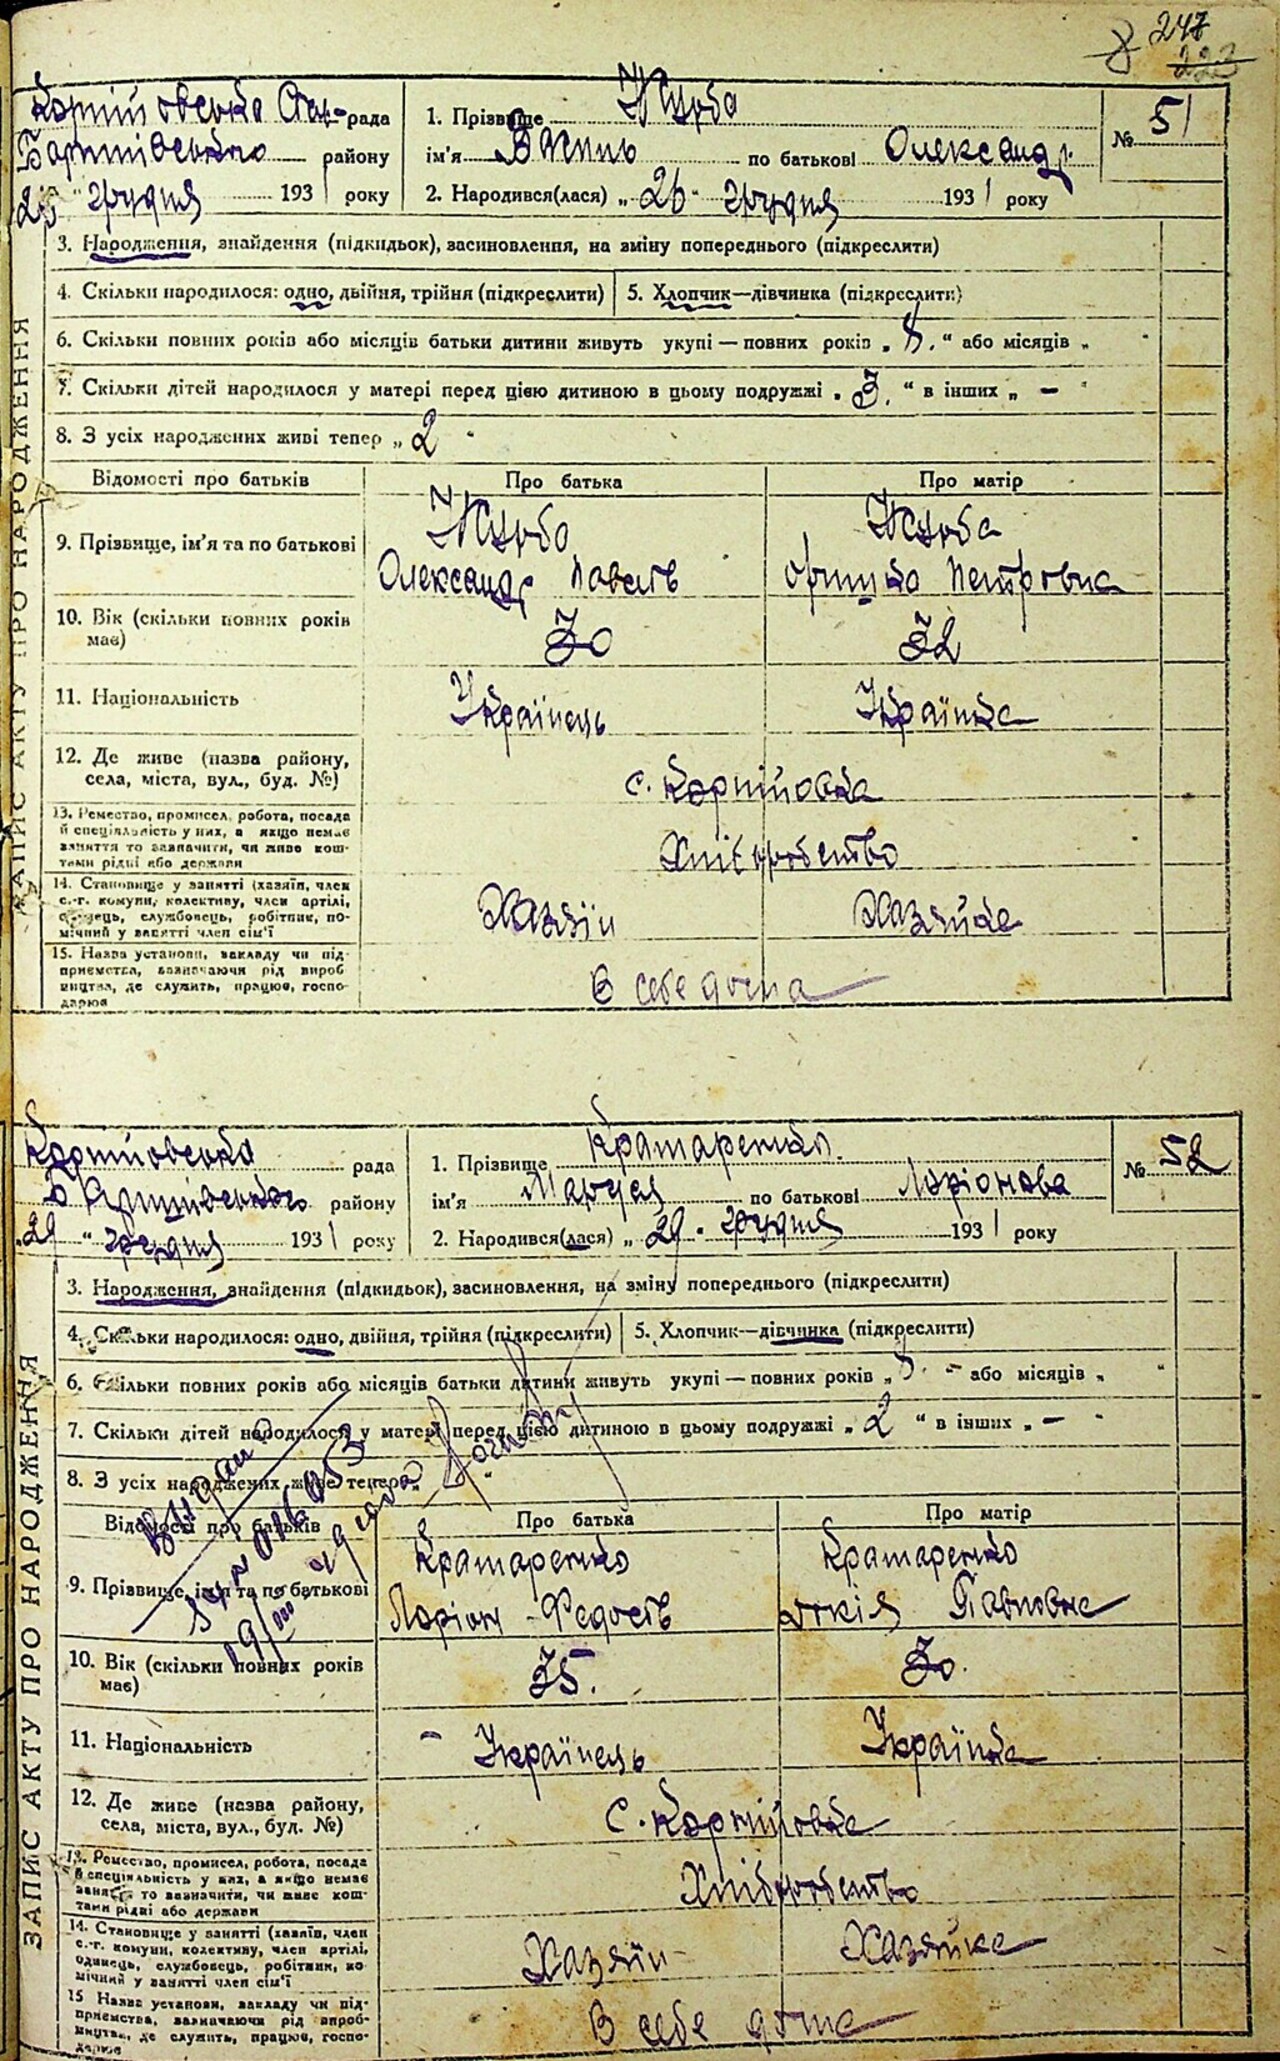 247
223
Корнійовська Сіл- рада
1. Прізвище Журба
№ 51
району
ім'я по батькові Олександр.
26 " грудня 1931 року
2. Народився(лася) „ 26 " грудня 1931 року
ЗАПИС АКТУ ПРО НАРОДЖЕННЯ
3. Народження, знайдення (підкидьок), засиновлення, на зміну попереднього (підкреслити)
4. Скільки народилося: одно, двійня, трійня (підкреслити)
5. Хлопчик—дівчинка (підкреслити)
6. Скільки повних років або місяців батьки дитини живуть укупі — повних років „ 8. " або місяців „ "
7. Скільки дітей народилося у матері перед цією дитиною в цьому подружжі „ 3. " в інших „ — "
8. З усіх народжених живі тепер „ 2 "
Відомості про батьків
Про батька
Про матір
9. Прізвище, ім'я та по батькові
Журба
Олександр Павлів
Журба
Петровна
10. Вік (скільки повних років
має)
30
32
11. Національність
Українець
Українка
12. Де живе (назва району,
села, міста, вул., буд. №)
с. Корнійовка
13. Ремество, промисел, робота, посада
й спеціяльність у них, а якщо немає
заняття то зазначити, чи живе кош-
тами рідні або держави
Хліборобство
14. Становище у занятті (хазяїн, член
с.-г. комуни, колективу, член артілі,
одинець, службовець, робітник, по-
мічний у занятті член сім'ї
Хазяїн
Хазяйка
15. Назва установи, закладу чи під-
приємства, зазначаючи рід вироб
ництва, де служить, працює, госпо-
дарює
В себе дома
Корнійовська рада
1. Прізвище Крамаренко.
№ 52
району
ім'я Маруся по батькові Ларіонова
„ 29 " грудня 1931 року
2. Народився(лася) „ 29 " грудня 1931 року
ЗАПИС АКТУ ПРО НАРОДЖЕННЯ
3. Народження, знайдення (підкидьок), засиновлення, на зміну попереднього (підкреслити)
4. Скільки народилося: одно, двійня, трійня (підкреслити)
5. Хлопчик—дівчинка (підкреслити)
6. Скільки повних років або місяців батьки дитини живуть укупі — повних років „ " або місяців „ "
7. Скільки дітей народилося у матері перед цією дитиною в цьому подружжі „ 2 " в інших „ — "
8. З усіх народжених живе тепера „ "
Відомості про батьків
Про батька
Про матір
9. Прізвище, ім'я та по батькові
Крамаренко
Ларіон Федосів
Крамаренко
Павловна
10. Вік (скільки повних років
має)
35.
30.
11. Національність
Українець
Українка
12. Де живе (назва району,
села, міста, вул., буд. №)
С. Корнійовка
13. Ремество, промисел, робота, посада
й спеціяльність у них, а якщо немає
заняття то зазначити, чи живе кош-
тами рідні або держави
Хліборобство
14. Становище у занятті (хазяїн, член
с.-г. комуни, колективу, член артілі,
одинець, службовець, робітник, по
мічний у занятті член сім'ї
Хазяїн
Хазяйка
15 Назва установи, закладу чи під-
приємства, зазначаючи рід вироб-
ництва, де служить, працює, госпо-
дарює
В себе дома